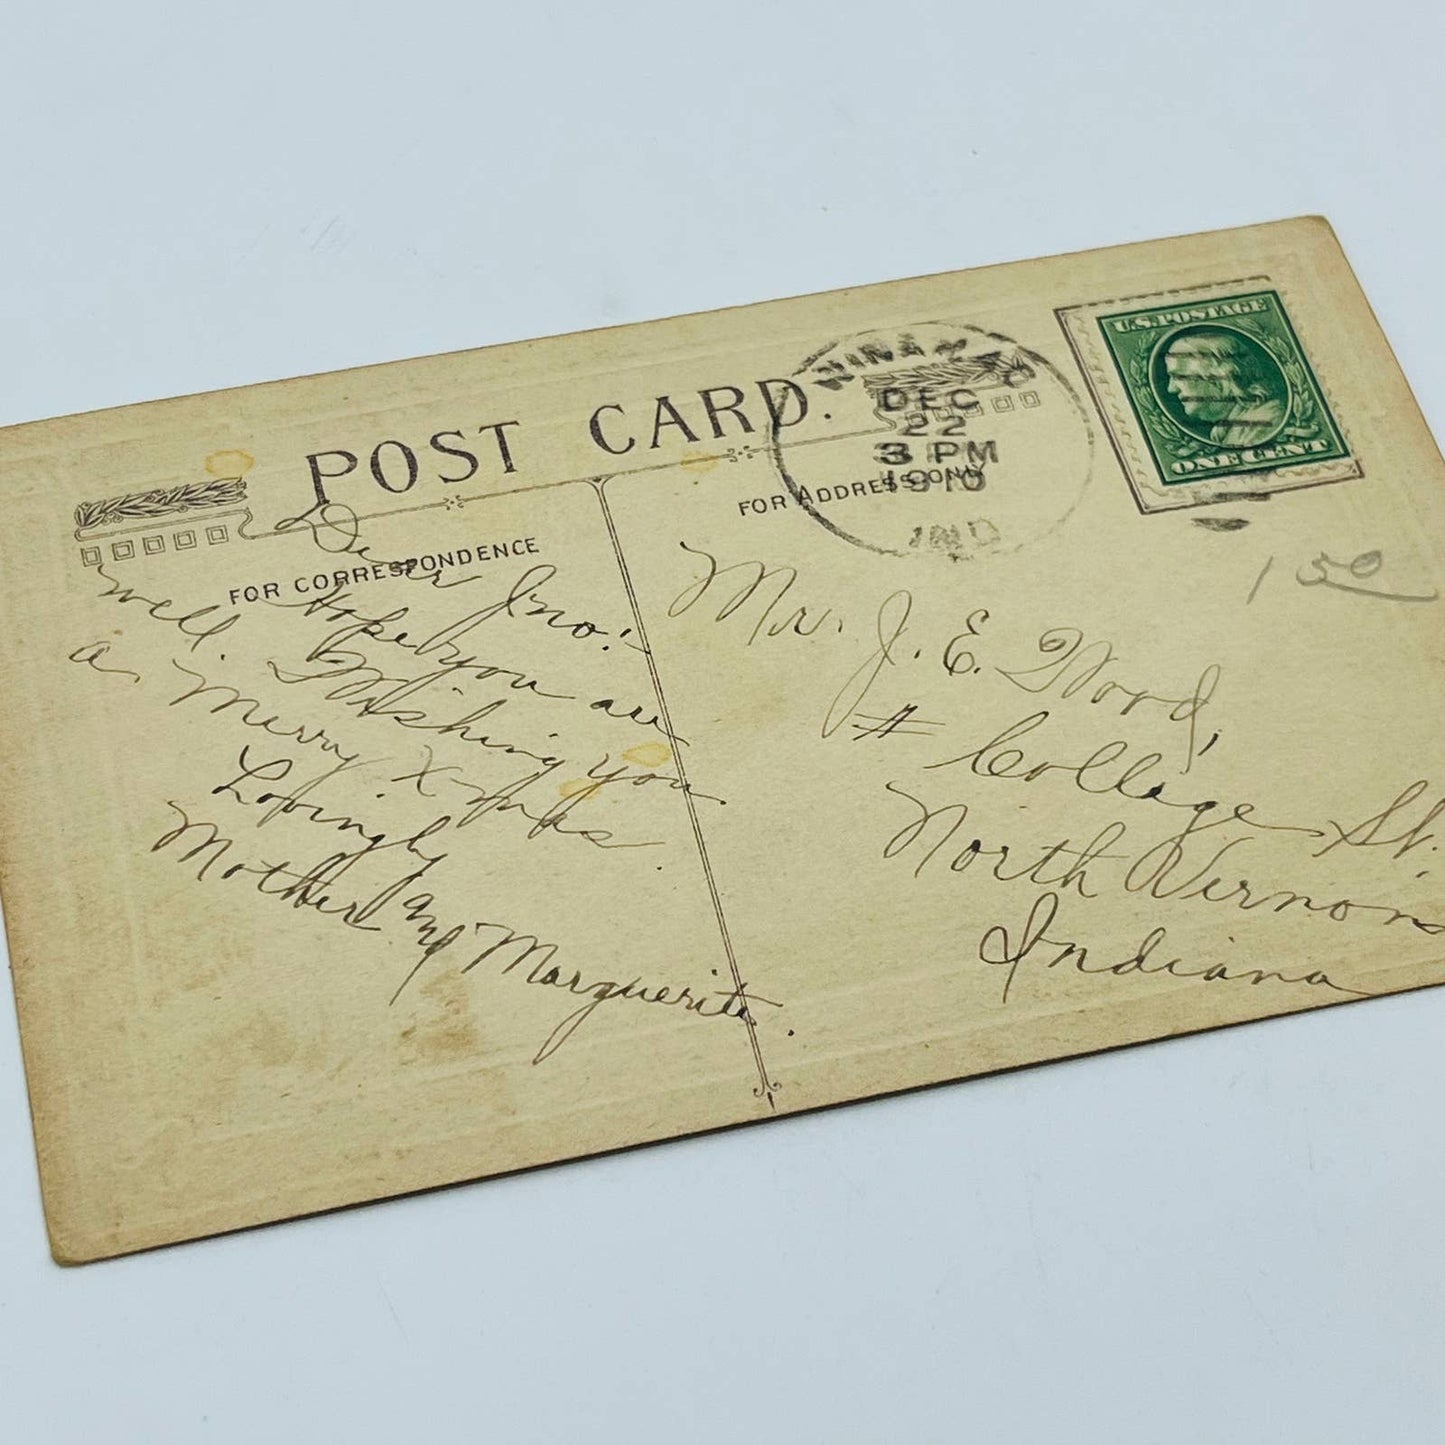 POST CARD.
FOR CORRESPONDENCE
Dear Jno:
Hope you are
well. Wishing you
a Merry Xmas.
Lovingly
Mother and Marguerite.
WINAMAC
DEC
22
3 PM
1910
IND
FOR ADDRESS ONLY
U.S. POSTAGE
ONE CENT
1 50
Mr. J. E. Word,
# College St.
North Vernon
Indiana